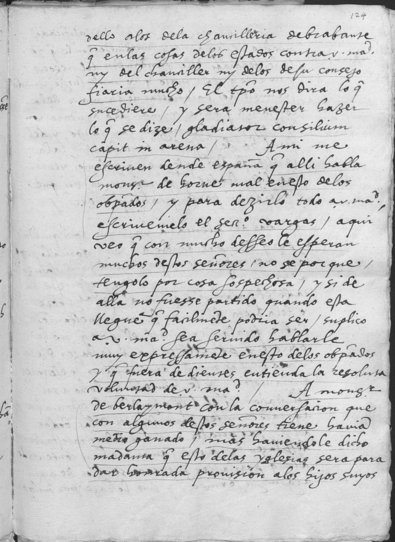 124
dello alos dela chancilleria de brabante
q̃ en las cosas delos estados contra v. mad.
ny del chanciller ny delos de su consejo
fiaria mucho / El tpõ nos dira lo q̃
sucediere / y sera menester hazer
lo q̃ se dize / gladiator consilium
capit in arena / A mi me
escriven dende españa q̃ alli habla
monsr de horne mal en esto delos
obpados / y para dezirlo todo a v. mad.
escrivemelo el secro vargas / aqui
veo q̃ con mucho desseo le esperan
muchos destos señores / no se por que /
tengolo por cosa sospechosa / y si de
alla no fuesse partido quando esta
llegue q̃ facilmẽte podria ser / suplico
a v. mad sea servido hablarle
muy expressamẽte en esto delos obpados
y q̃ fuera de dienses entienda la resoluta
voluntad de v. mad / A monsr
de berlaymont con la conversacion que
con algunos destos señores tiene havia
medio ganado / mas haviendole dicho
madama q̃ esto delas yglesias sera para
dar honrrada provision alos hijos suyos